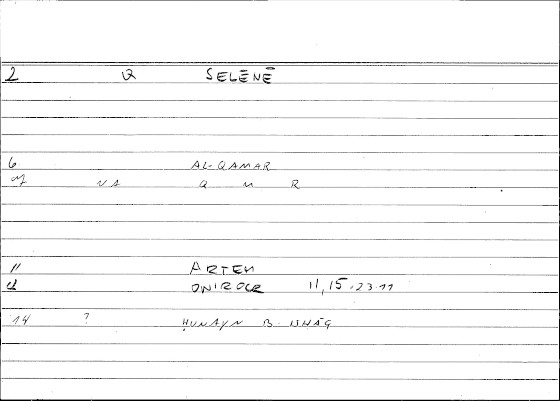 2 Q SELĒNĒ
6 AL-QAMAR
NA Q M R
11 ARTEM
ONIROCR 11,15.23.11
14 ? ḤUNAYN B. ISḤĀQ